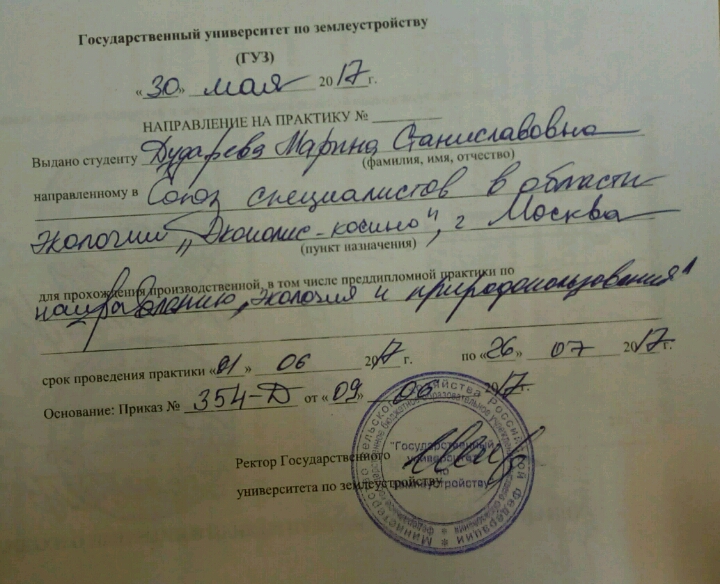 Государственный университет по землеустройству
(ГУЗ)
«30» мая 2017г.
НАПРАВЛЕНИЕ НА ПРАКТИКУ №
Выдано студенту Дударева Марина Станиславовна
(фамилия, имя, отчество)
направленному в Союз специалистов в области
экологии „Экополис-косино", г Москва
(пункт назначения)
для прохождения производственной, в том числе преддипломной практики по
направлению „экология и природопользования"
срок проведения практики «01» 06 2017г. по «26» 07 2017г.
Основание: Приказ № 354-Д от «09» 06 2017г.
Ректор Государственного
университета по землеустройству
"Государственный
университет
по
землеустройству"